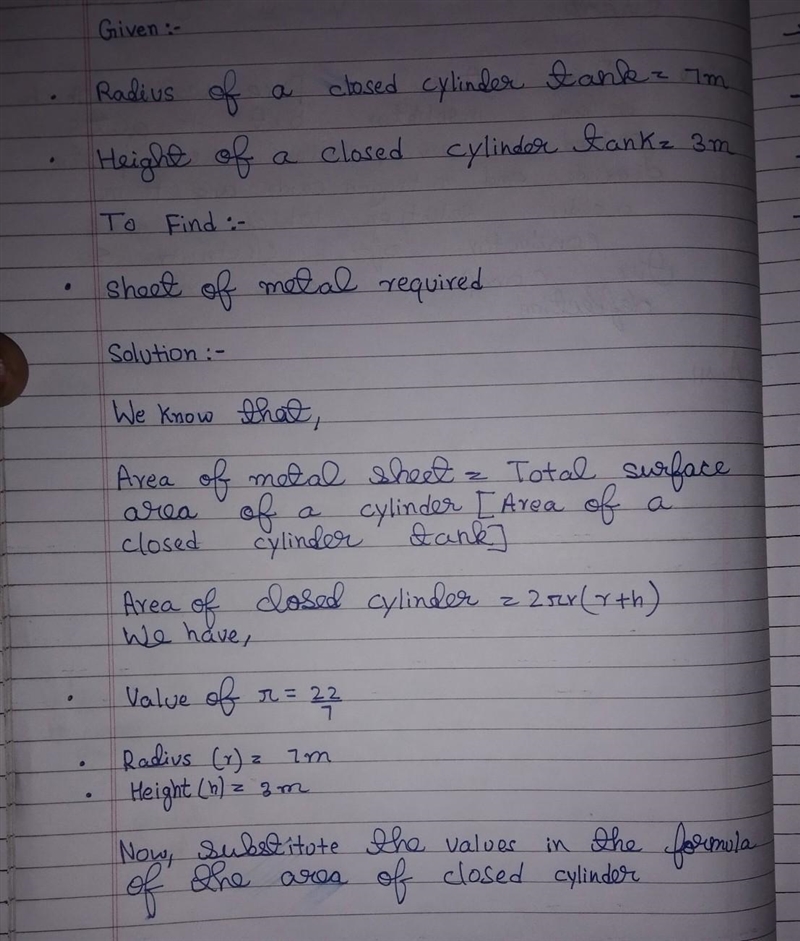 Given:-
• Radius of a closed cylinder tank= 7m
• Height of a closed cylinder tank= 3m
To Find:-
• Sheet of metal required
Solution:-
We know that,
Area of metal sheet = Total surface
area of a cylinder [Area of a
closed cylinder tank]
Area of closed cylinder = 2πr(r+h)
We have,
• Value of π = 22/7
• Radius (r) = 7m
• Height (h) = 3m
Now, substitote the values in the formula
of the area of closed cylinder